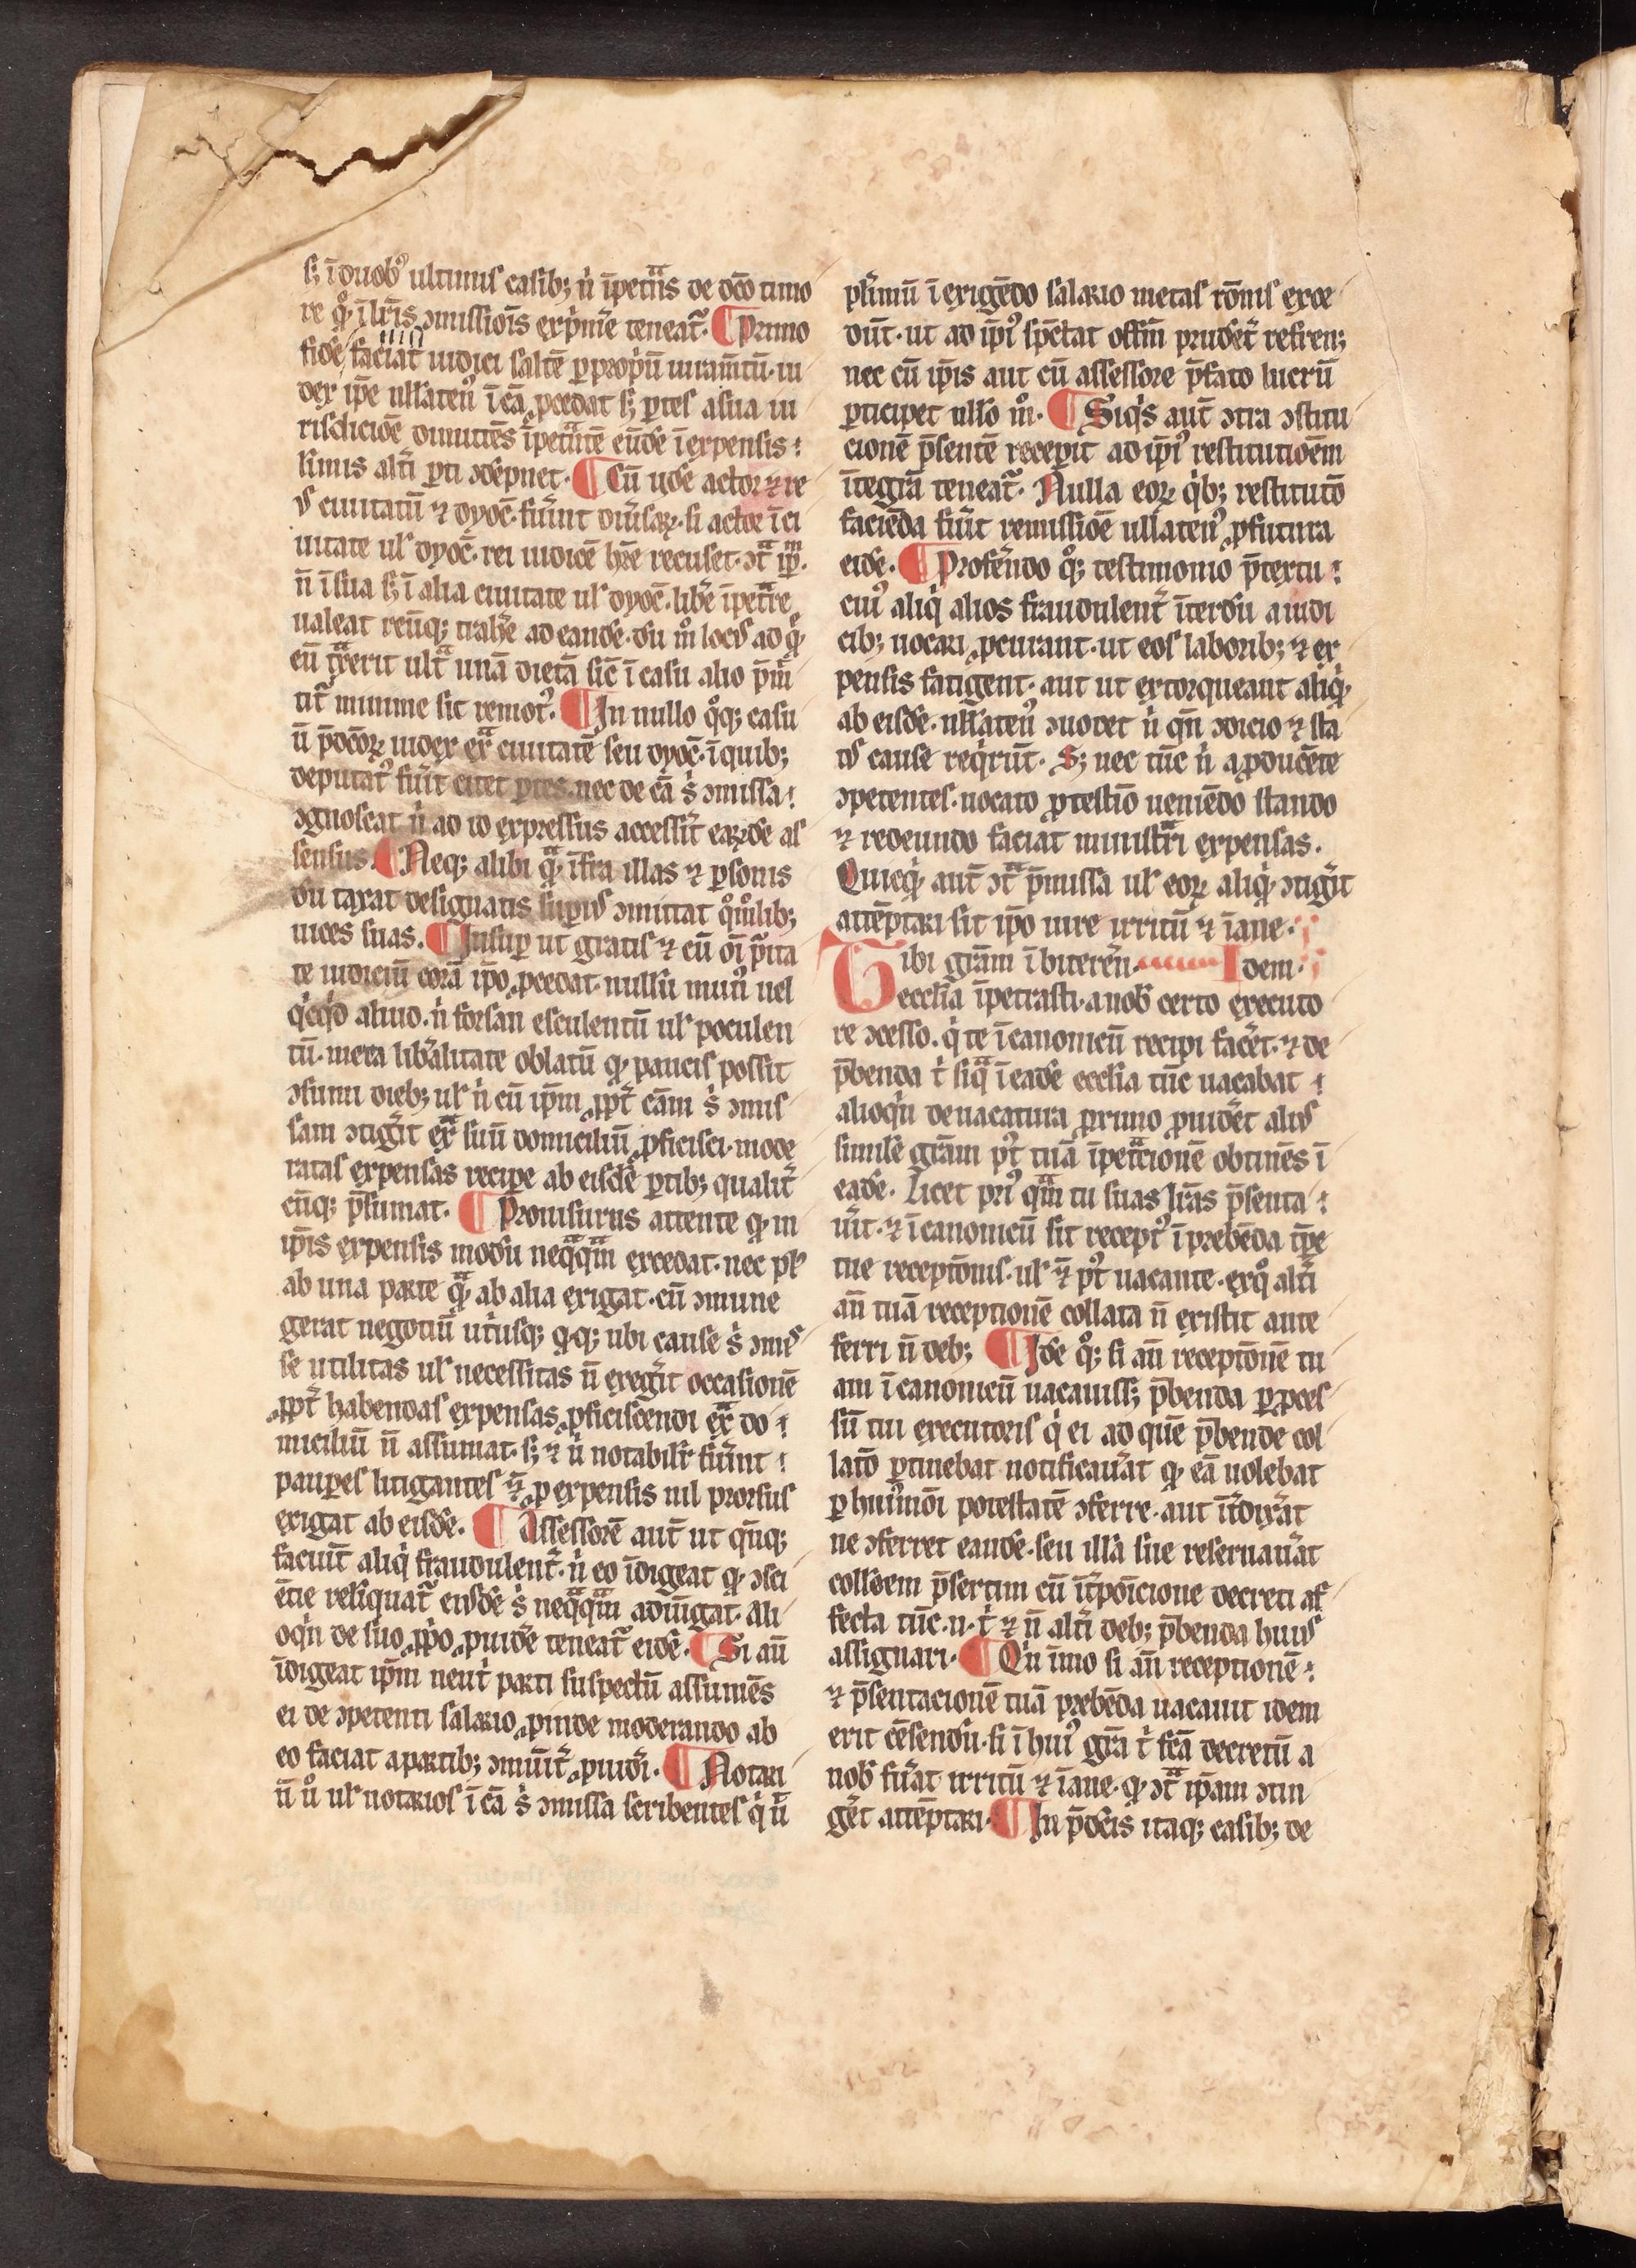 s; ī duob᷒ ultimis casib; ń īpet͛ns de dc̄o timo
re qͦ ī lr̄is ꝯmissiōis exp͛mē teneat͛. ¶ Primo
fidē faciat iudici saltē ꝑ propŭ iuram̄tū. iu
dex ip̄e ullaten᷒ ī cā ꝓcedat s; ꝑtes a sua iu
risdictiōe dimittēs īpet͛ntē eūdē ī expensis :
limis alt͛i ꝑti ꝯdēpnet. ¶ Cū ꝟde actor ⁊ re
᷒ ciuitatū ⁊ dyoc̄. fu͛int diu͛saꝝ. si actor ī ci
uitate ul' dyoc̄. rei iudicē hr̄e recuset. ꝯt͛ ip̄m.
n̄ ī sua s; ī alia ciuitate ul' dyoc̄. lib͛e īpet͛re
ualeat reūq; trah͛e ad eandē. dū mͦ loc᷒ ad qͦ
eū t͛xerit ult͛ unā dietā sic̄ ī casu alio p̄m̄
tit͛ minime sit remot᷒. ¶ In nullo qͦq; casu
ū p̄dc̄oꝝ iudex ex͛ ciuitatē seu dyoc̄. ī quib;
deputat᷒ fu͛it citet ꝑtes. nec de cā s̓ ꝯmissa :
ꝯgnoscat ń ad id expressus accessit͛ eaꝝdē as
sensus. ¶ Neq; alibi q͛ īfra illas ⁊ ꝑsonis
dū taxat designatis sup͛i᷒ ꝯmittat qͦmͦlib;
uices suas. ¶ Insuꝑ ut gratis ⁊ cū oī pu͛ita
te iudiciū corā ip̄o ꝓcedat. nullū mun᷒ uel
q̓cq̓d aliud. ń forsan esculentū ul' poculen
tū. mera lib͛alitate oblatū ꝙ paucis possit
ꝯsumi dieb; ul' ń cū ip̄m ꝓpt͛ cām s̓ ꝯmis
sam ꝯtig͛it ex͛ suū domiciliū ꝓficisci. mode
ratas expensas recipe ab eisdē ꝑtib; qualit͛
cūq; p̄sumat. ¶ Prouisurus attente ꝙ in
ip̄is expensis modū neq͛q͛m excedat. nec pl᷒
ab una parte q͛ ab alia exigat. cū ꝯmune
gerat negotiū ut͛usq; ꝙq; ubi cause s̓ ꝯmis
se utilitas ul' necessitas n̄ exeg͛it occasionē
ꝓpt͛ habendas expensas ꝓficiscendi ex͛ do :
miciliū n̄ assumat. s; ⁊ ń notabilr̄ fu͛int :
pauꝑes litigantes n̄ ꝓ expensis nil prorsus
exigat ab eisdē. ¶ Assessorē aut̄ ut qn̄q;
faciūt aliq̓ fraudulent͛. ń eo īdigeat ꝙ ꝯsci
ētie reliquat͛ eiusdē s̓ neq͛q͛m adiūgat. ali
oq̓n de suo ꝓp̓o ꝓuidē teneat͛ eidē. ¶ Si aū
īdigeat ip̄m neut͛i parti suspectū assumēs
ei de ꝯpetenti salario ꝓinde moderando ab
eo faciat a partib; ꝯmūit͛ ꝓuid͛i. ¶ Notari
ū uͦ ul' notarios ī cā s̓ ꝯmissa scribentes q̓ ū
pl͛imū ī exigēdo salario metas rōnis exce
dūt. ut ad ip̄i᷒ sp̄ctat offm̄ prudēt͛ refren;
nec cū ip̄is aut cū assessore p̄fato lucrū
ꝑticipet ullo mͦ. ¶ Siq̓s aut̄ ꝯtra ꝯstitu
cionē p̄sentē recepit ad ip̄i᷒ restitutiōem
ītegrā teneat͛. Nulla eoꝝ q̓b; restitutō
faciēda fu͛it remissiōe ullaten᷒ ꝓfutura
eidē. ¶ Profēndo qͦ; testimonio p̄textu :
cui᷒ aliq̓ alios fraudulent͛ īterdū a iudi
cib; uocari ꝓcurant. ut eos laborib; ⁊ ex
pensis fatigent. aut ut extorqueant aliq̓
ab eisdē. ullaten᷒ ꝯuocet ń qn̄ ꝯdicio ⁊ sta
t᷒ cause req̓rūt. S; nec tūc ń a ꝓducēte
ꝯpetentes. uocato ꝓ testiō ueniēdo stando
⁊ redeundo faciat ministr͛i expensas.
Quicq̓ aut̄ ꝯt͛ p̄missa ul' eoꝝ aliq̓ ꝯtig͛it
attēptari sit ip̄o iure irritū ⁊ īane.
Tibi grām ī biteren̄. Idem.
ecclīa īpetrasti. a nob᷒ certo executo
re ꝯcesso. q̓ te ī canonicū recipi fac͛et. ⁊ de
p̄benda t̓ siq͛ ī eadē ecclīa tūc uacabat :
alioq̓n de uacatura ꝓ primo ꝓuid͛et. ali᷒
simile grām p᷒t tuā īpet͛cionē obtinēs ī
eadē. Licet pri᷒ q͛m tu suas lr͛as p̄senta :
u͛it. ⁊ ī canonicū sit recept᷒ ī prebēda tp̄e
tue receptōnis. ul' ⁊ p᷒t uacante. ex qͦ alt͛i
an̄ tuā receptionē collata n̄ existit ante
ferri n̄ deb; ¶ Idē qͦ; si an̄ receptōnē tu
am ī canonicū uacauiss; p̄benda ꝑ ꝓces
sū tui executoris q̓ ei ad quē p̄bende col
latō ꝑtinebat notificau͛at ꝙ eā uolebat
ꝑ hui᷒mōi potestatē ꝯferre. aut īt͛dix͛at
ne ꝯferret eandē. seu illā sue reseruau͛at
collōem p̄sertim cū īt͛pōicione decreti af
fecta tūc. n. t̓ ⁊ n̄ alt͛i deb; p̄benda hui᷒
assignari. ¶ Q̓n imo si an̄ receptionē :
⁊ p̄sentacionē tuā prebēda uacauit idem
erit cēsendū. si ī hui᷒ grā t̓ fcā decretū a
nob᷒ fu͛at irritū ⁊ īane. ꝙ ꝯt͛ ip̄am ꝯtin
g͛et attēptari. ¶ In p̄dc̄is itaq; casib; de